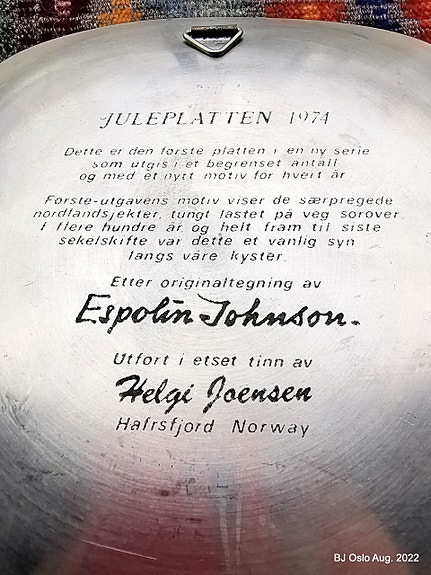 JULEPLATTEN 1974
Dette er den første platten i en ny serie
som utgis i et begrenset antall
og med et nytt motiv for hvert år
Første-utgavens motiv viser de særpregede
nordlandsjekter, tungt lastet på veg sørover
I flere hundre år, og helt fram til siste
sekelskifte var dette et vanlig syn
langs våre kyster.
Etter originaltegning av
Espolin-Johnson.
Utført i etset tinn av
Helgi Joensen
Hafrsfjord Norway
BJ Oslo Aug. 2022